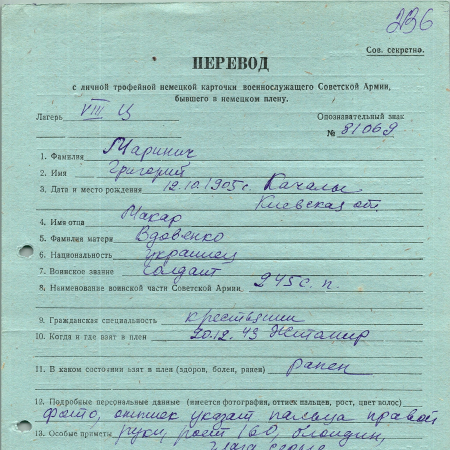 236
Сов. секретно.
ПЕРЕВОД
с личной трофейной немецкой карточки военнослужащего Советской Армии,
бывшего в немецком плену.
Лагерь VIII Ц
Опознавательный знак
№ 81069
1. Фамилия Маринич
2. Имя Григорий
3. Дата и место рождения 12.10.1905г. Качалы
Киевская об.
4. Имя отца Макар
5. Фамилия матери Вдовенко
6. Национальность украинец
7. Воинское звание солдат
8. Наименование воинской части Советской Армии 245 с. п.
9. Гражданская специальность крестьянин
10. Когда и где взят в плен 20.12.43 Житомир
11. В каком состоянии взят в плен (здоров, болен, ранен) ранен
12. Подробные персональные данные (имеется фотография, оттиск пальцев, рост, цвет волос)
фото, оттиск указат пальца правой
13. Особые приметы руки, рост 160, блондин,